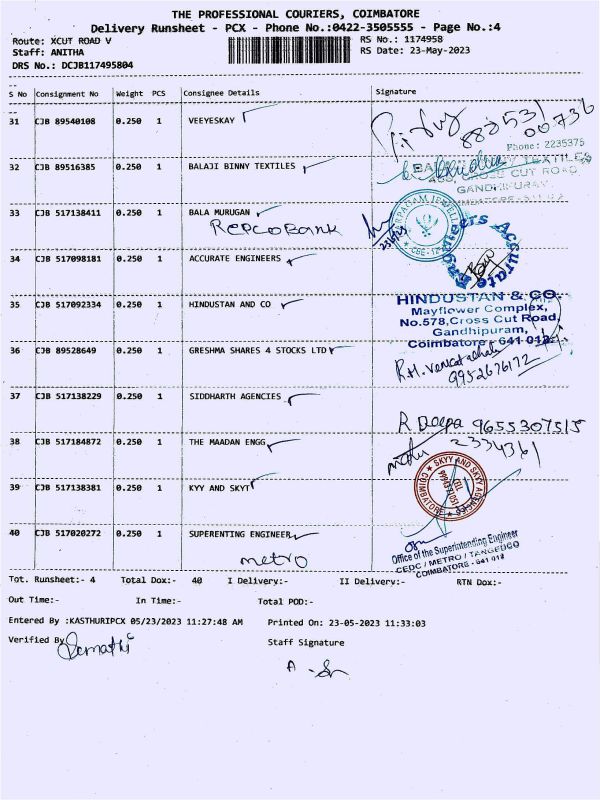 THE PROFESSIONAL COURIERS, COIMBATORE
Delivery Runsheet - PCX - Phone No.:0422-3505555 - Page No.:4
Route: XCUT ROAD V
RS No.: 1174958
Staff: ANITHA
RS Date: 23-May-2023
DRS No.: DCJB117495804
S No Consignment No Weight PCS Consignee Details Signature
31 CJB 89540108 0.250 1 VEEYESKAY
Phone: 2235375
32 CJB 89516385 0.250 1 BALAJI BINNY TEXTILES
CROSS CUT ROAD
GANDHIPURAM
33 CJB 517138411 0.250 1 BALA MURUGAN
REPCOBANK
34 CJB 517098181 0.250 1 ACCURATE ENGINEERS
Accurate Engineers
35 CJB 517092334 0.250 1 HINDUSTAN AND CO
HINDUSTAN & CO.
Mayflower Complex,
No.578,Cross Cut Road,
Gandhipuram,
Coimbatore - 641 012.
36 CJB 89528649 0.250 1 GRESHMA SHARES 4 STOCKS LTD
R.H. Venkatachalam
9952676172
37 CJB 517138229 0.250 1 SIDDHARTH AGENCIES
R Deepa 9655307515
38 CJB 517184872 0.250 1 THE MAADAN ENGG
2334361
39 CJB 517138381 0.250 1 KYY AND SKYT
SKYY AND SKYY AGENCY
COIMBATORE
40 CJB 517020272 0.250 1 SUPERENTING ENGINEER
metro
Office of the Superintending Engineer
CEDC / METRO / TANGEDCO
COIMBATORE - 641 012
Tot. Runsheet:- 4 Total Dox:- 40 I Delivery:- II Delivery:- RTN Dox:-
Out Time:- In Time:- Total POD:-
Entered By :KASTHURIPCX 05/23/2023 11:27:48 AM Printed On: 23-05-2023 11:33:03
Verified By Staff Signature